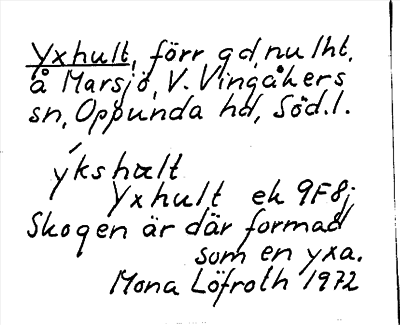 Yxhult, förr gd, nu lht.
å Marsjö, V. Vingåkers
sn, Oppunda hd, Söd.l.
ýkshult
Yxhult ek 9F8j
Skogen är där formad
som en yxa.
Mona Löfroth 1972